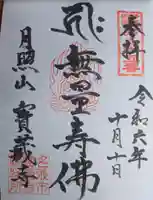 奉拝
令和六年
十月十日
無量寿佛
月照山 寳蔵寺